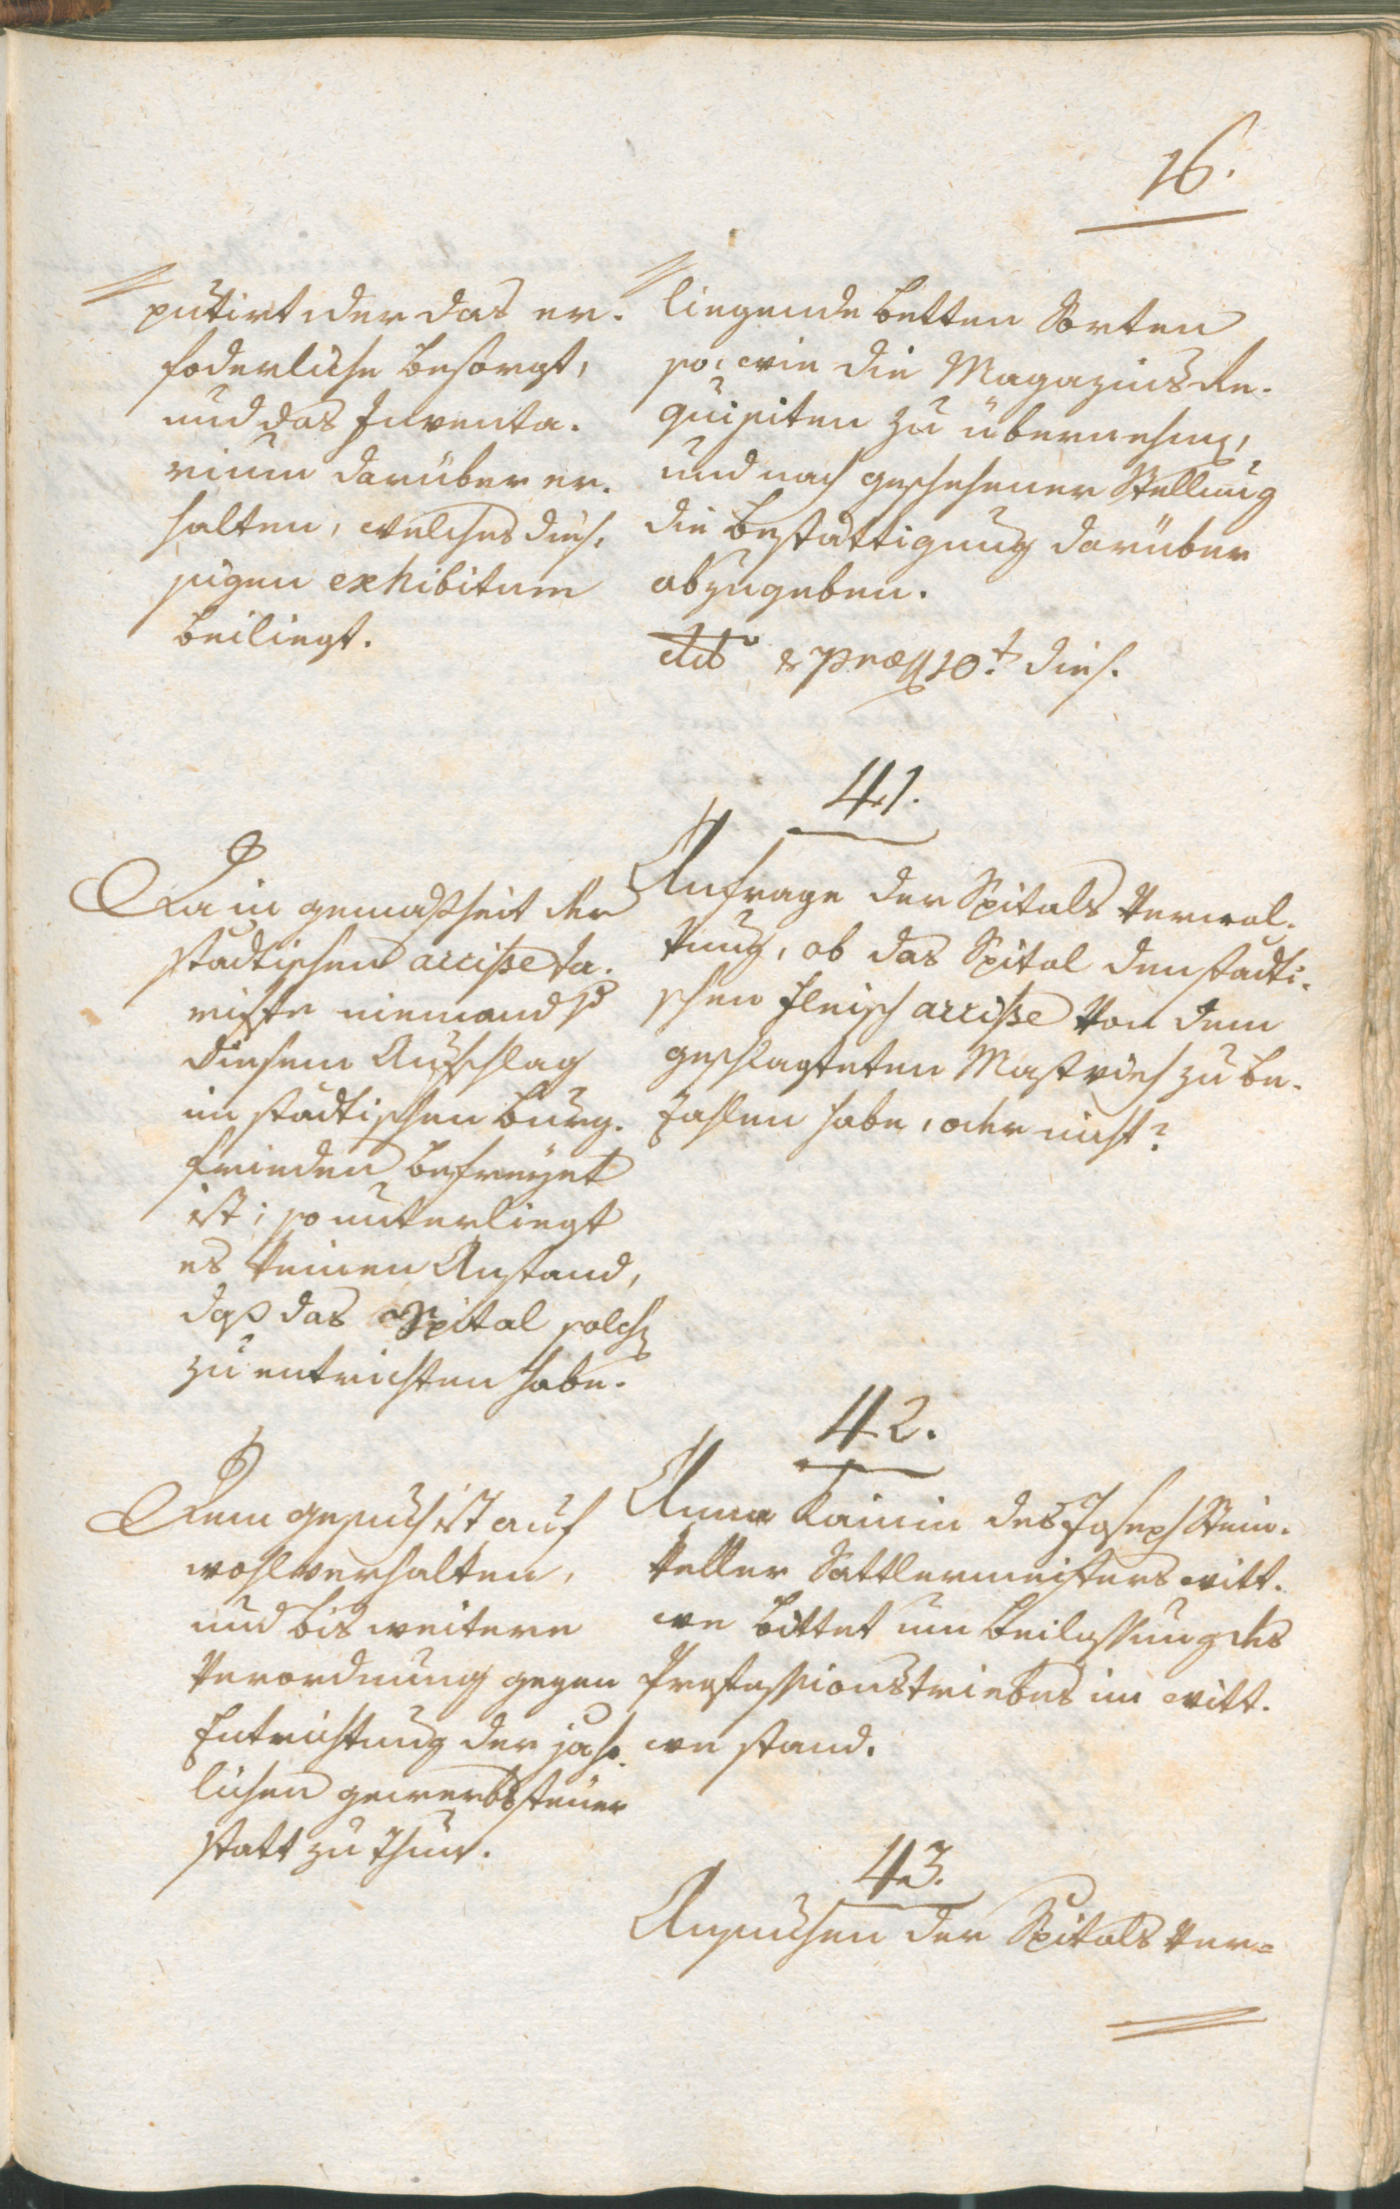 16.
putirt der das er-
foderliche besorgt,
und das Inventa-
rium darüber er-
halten, welches dies-
sigen exhibitum
beiliegt.
liegende Betten Sorten
so, wie die Magazins Re-
quisiten zu übernehmen,
und nach geschehener Stellung
die Bestättigung darüber
abzugeben.
dto & Præs 10t dies.
41.
Anfrage der Spitals Verwal-
tung, ob das Spital den stadti-
schen Fleisch accisse von dem
geschlagteten Mastvieh zu be-
zahlen habe, oder nicht?
Da in gemaßheit der
stadtischen accisse ta-
riffe niemand
diesem Aufschlag
im stadtischen Burg-
frieden befreyet
ist; so unterliegt
es keinen Anstand,
daß das Spital solchen
zu entrichten habe.
42.
Anna Kainin des Joseph Stein-
keller Sattlermeisters witt-
we bittet um Beilassung des
Professionstriebes im witt-
we stand.
Dem gesuch ist auf
wohlverhalten,
und bis weitere
Verordnung gegen
Entrichtung der jahr-
lichen gewerbssteuer
statt zu thun.
43.
Ansuchen der Spitals Ver-